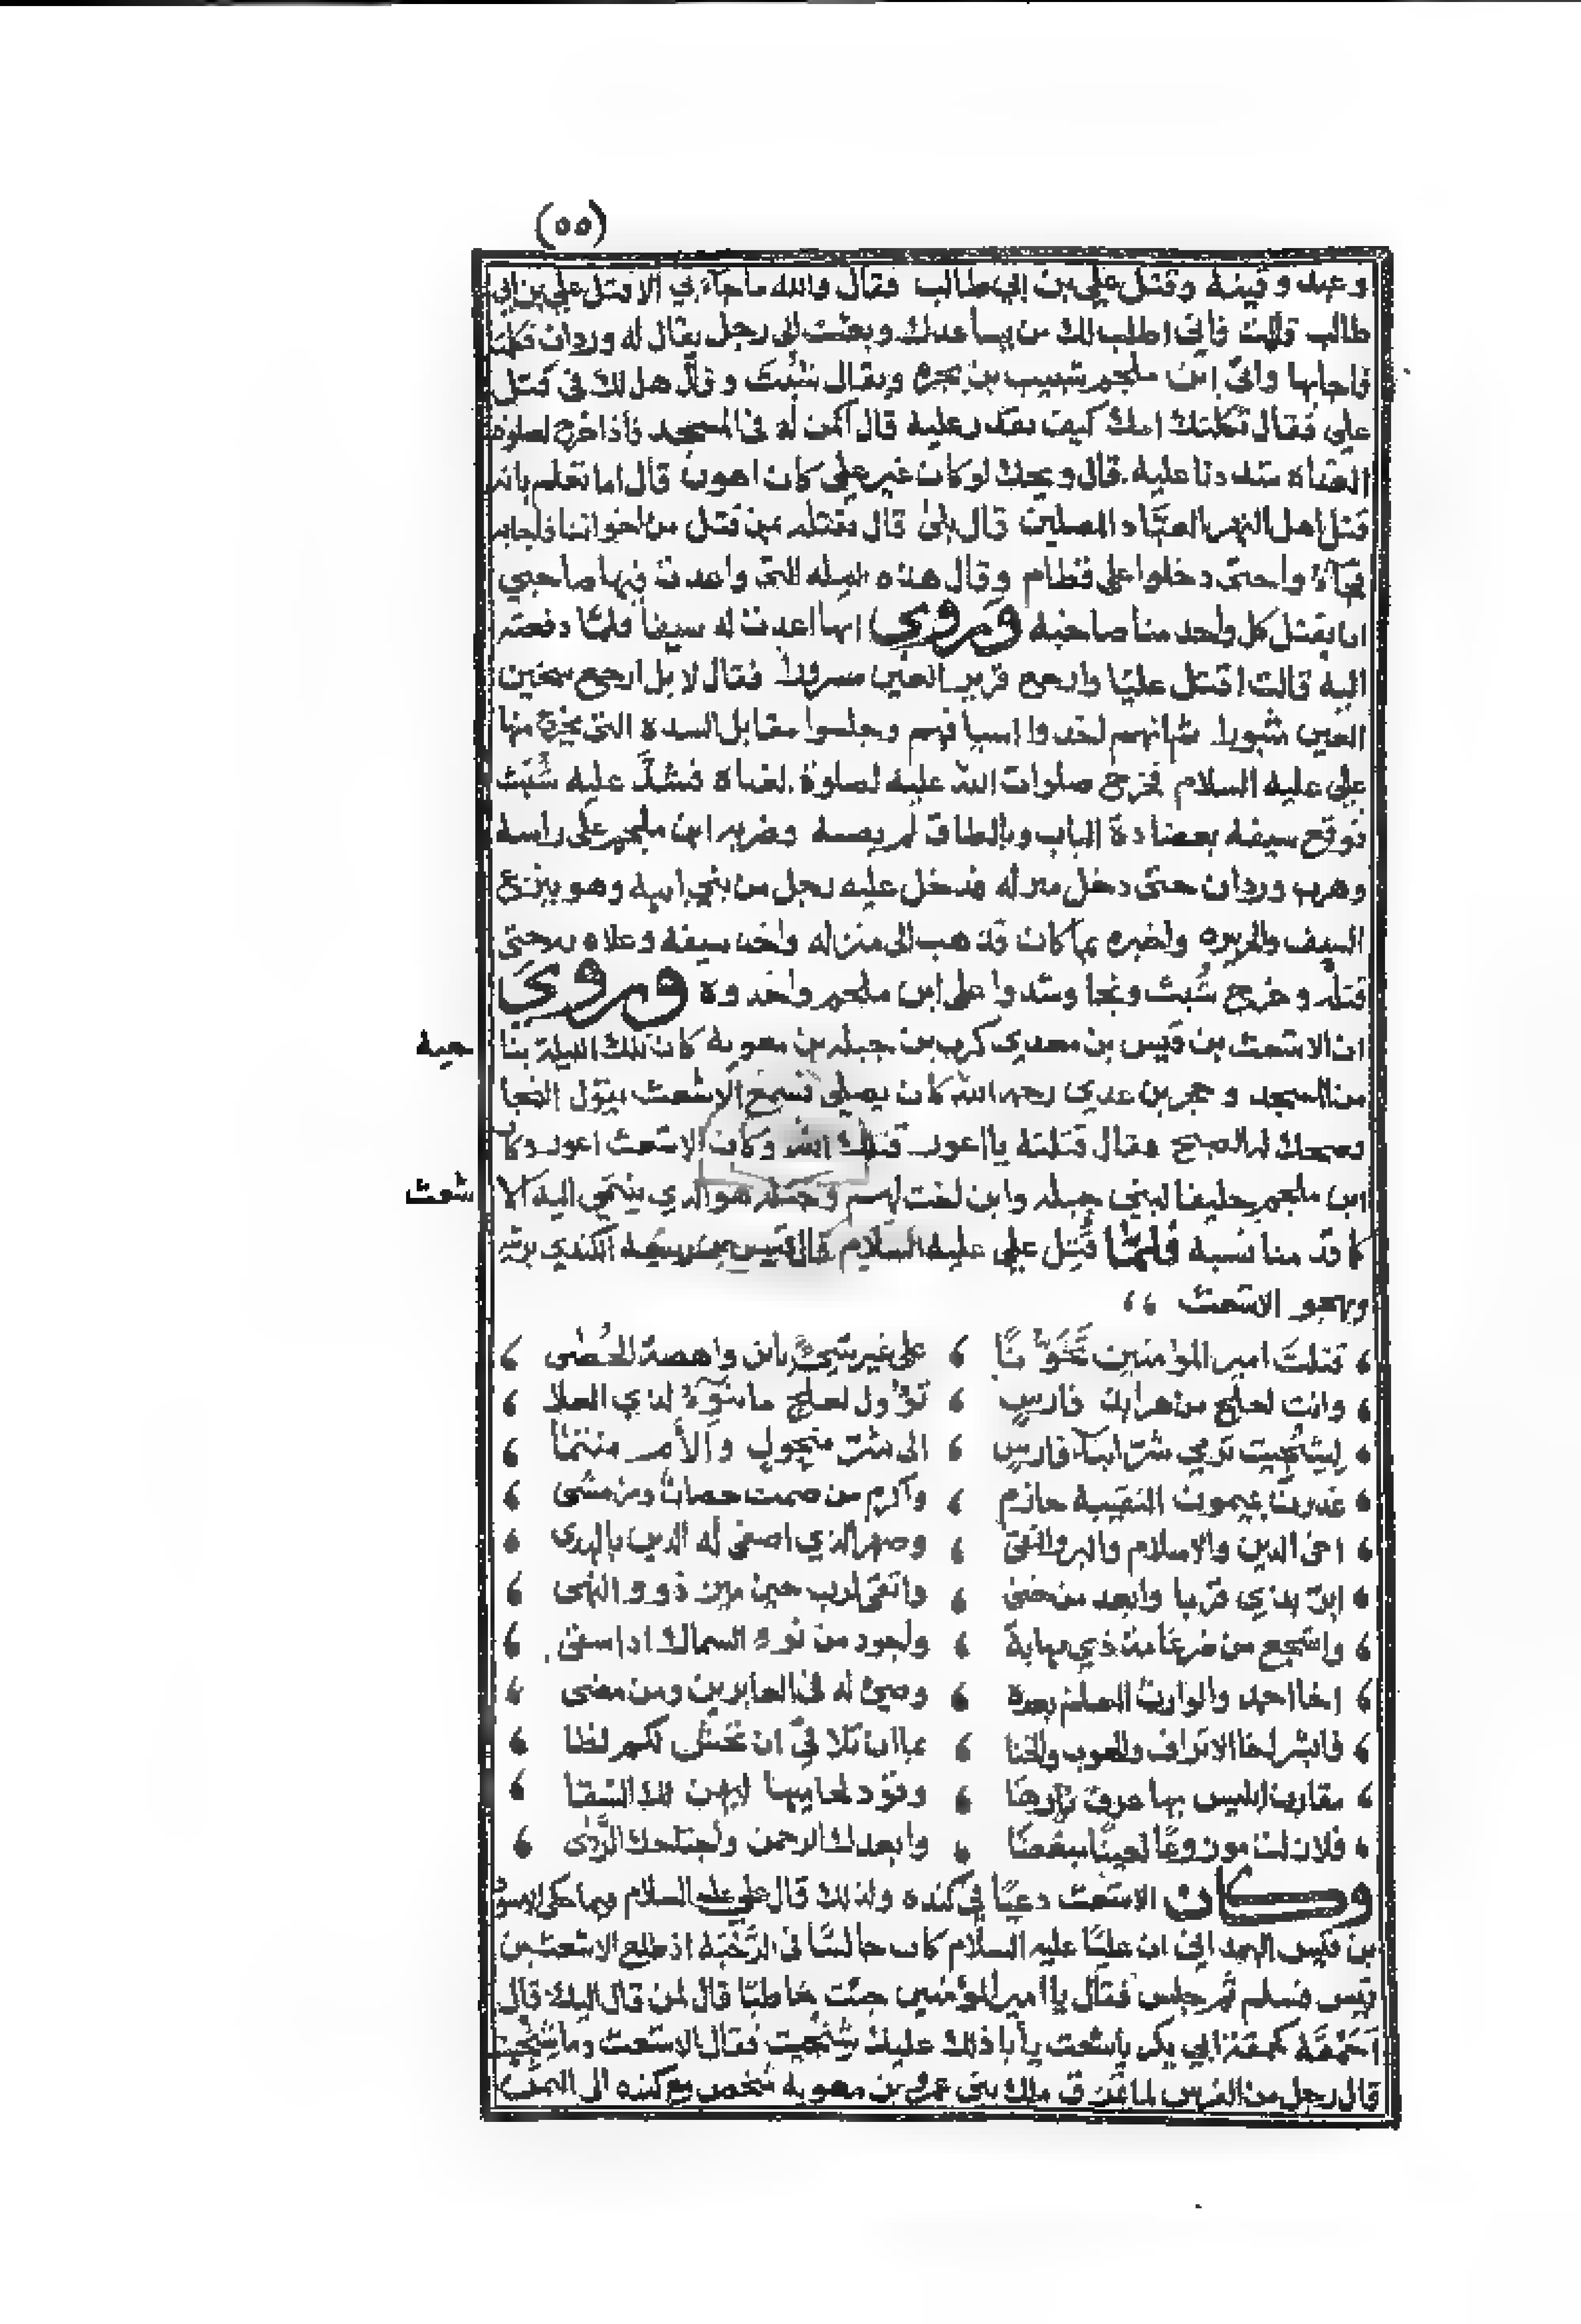 (٥٥)
وعبد وقينة وقتل علي بن ابي طالب فقال والله ماجاءَ بي الا قتل علي بن ابي
طالب قالت فاني اطلب لك من يساعدك وبعثت الى رجل يقال له وردان فكلمته
فاجابها واتى ابن ملجم شبيب بن بجرة ويقال شبث وقال هل لك في قتل
علي فقال ثكلتك امك كيف نقدر عليه قال اكمن له في المسجد فاذا خرج لصلوة
الغداه شددنا عليه قال ويحك لو كان غير علي كان اهون قال اما تعلم بانه
قتل اهل النهر العبّاد المصلين قال بلى قال نقتله بمن قتل من اخواننا فاجابه
فجآءُوا حتى دخلوا على قطام وقال هذه الليله التي واعدت فيها صاحبي
ان يقتل كل واحد منا صاحبه وَرُوِي انها اعدت له سيفا فلمّا دفعته
اليه قالت اقتل عليّا وارجع قرير العين مسرورا فقال لا بل ارجع سخين
العين مثبورا ثم انهم اخذوا اسيافهم وجلسوا مقابل السدة التي يخرج منها
علي عليه السلام فخرج صلوات الله عليه لصلوة الغداة فشدّ عليه شبث
فوقع سيفه بعضادة الباب وبالطاق لم يصبه وضربه ابن ملجم على راسه
وهرب وردان حتى دخل منزله فدخل عليه رجل من بني اميه وهو ينزع
السيف والحريره واخبره بما كان فذهب الى منزله واخذ سيفه وعلاه به حتى
قتله وخرج شُبث ونجا وشدوا على ابن ملجم واخذوه وَرُوِيَ
ان الاشعث بن قيس بن معدي كرب بن جبله بن معويه كان تلك الليلة بنا
حية
من المسجد وحجر بن عدي رحمه الله كان يصلي فسمع الاشعث يقول النجا
فضحك له الصبح فقال قتلته يا اعور قتلك الله وكان الاشعث اعور وكان
ابن ملجم حليفا لبني جبله وابن اخت لهم وجبله هو الذي ينتمي اليه الا
شعث
كان قد مناسبه فلمّا قُتِل علي عليه السلام قال قيس الكندي يرثيه
ويهجو الاشعث ،،
، قتلتَ امير المؤمنين تَخَوُّنًا ، على غير شيءٍ يا بن واهصة الخُصٰى ،
، وانت لعلج من هرابذ فارسٍ ، تؤول لعلج ما شَوَه لذي العلا ،
، لِشَنْجِيت تَرمي شرّ ابناء فارسٍ ، الى شرّ منجولٍ والأم منتمًا ،
، غدرت بميمون النقيبة حازم ، واكرم من صمت حصانٌ ومن مشى ،
، اخي الدين والاسلام والبر والتقى ، وصهر الذي اصفى له الدين بالهدى ،
، ابن بذي قربا وابعد من خنى ، واتقى لرب حين من ذوو النهى ،
، واشجع من ضرغامة ذي مهابة ، واجود من نوء السماك اذا سقى ،
، اخا احمد والوارث العلم بعده ، وصيّ له في الغابرين ومن مضى ،
، فابشر اخا الاتراف والحوب والخنا ، بما ان تلاقي ان تحشى لكم لظا ،
، مقارن ابليس بها حرق نارها ، وتؤد لحاميها لاهل الشقا ،
، فلا زلت موزوعًا لعينًا مبغضًا ، وابعدك الرحمن واجتاحك الرَّدى ،
وكان الاشعث دعيّا في كنده ولذلك قال علي عليه السلام وبما حكى الاسود
بن قيس الهمداني ان عليّا عليه السلام كان جالسًا في الرَّحْبَة اذ طلع الاشعث بن
قيس فسلم ثم جلس فقال يا امير المؤمنين جئت خاطبًا قال لمن قال اليك قال
اَحُمْقَة كحمقة ابي بكر يا اشعث يأبا ذلك عليك شِنْجيت فقال الاشعث وما شِنْجيت
قال رجل من الفرس لما غرق ملك بني عمرو بن معويه شخص مع كنده الى اليمن